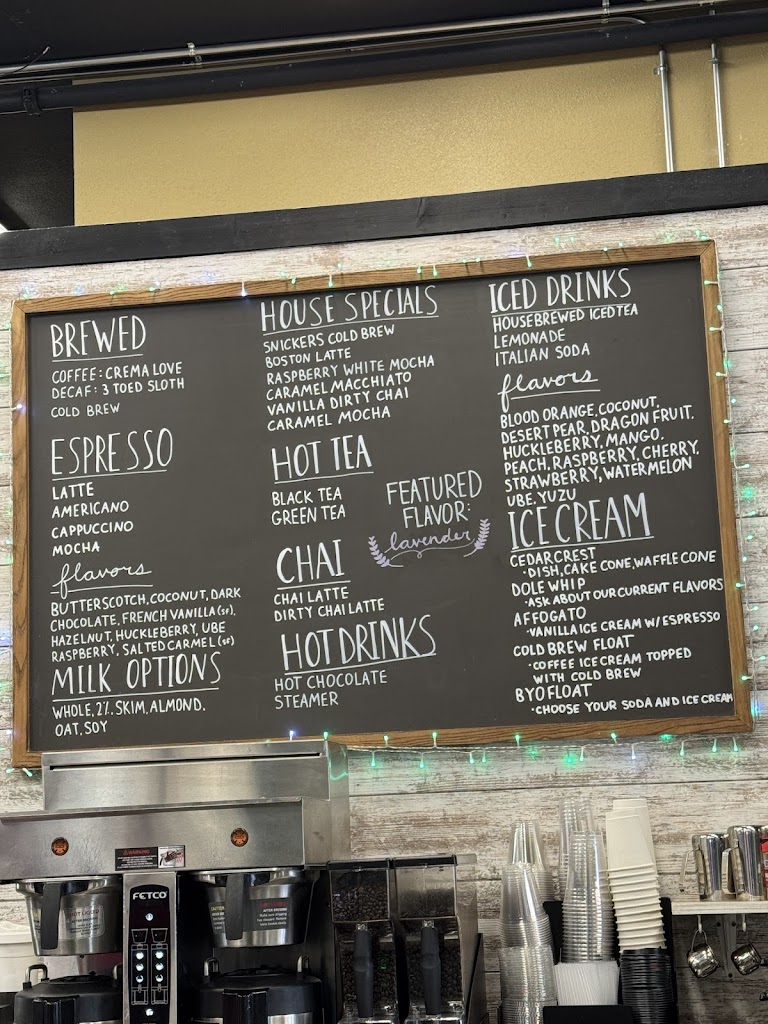 BREWED
COFFEE: CREMA LOVE
DECAF: 3 TOED SLOTH
COLD BREW
ESPRESSO
LATTE
AMERICANO
CAPPUCCINO
MOCHA
flavors
BUTTERSCOTCH, COCONUT, DARK
CHOCOLATE, FRENCH VANILLA (SF),
HAZELNUT, HUCKLEBERRY, UBE
RASPBERRY, SALTED CARMEL (SF)
MILK OPTIONS
WHOLE, 2%, SKIM, ALMOND,
OAT, SOY
HOUSE SPECIALS
SNICKERS COLD BREW
BOSTON LATTE
RASPBERRY WHITE MOCHA
CARAMEL MACCHIATO
VANILLA DIRTY CHAI
CARAMEL MOCHA
HOT TEA
BLACK TEA
GREEN TEA
FEATURED
FLAVOR:
lavender
CHAI
CHAI LATTE
DIRTY CHAI LATTE
HOT DRINKS
HOT CHOCOLATE
STEAMER
ICED DRINKS
HOUSEBREWED ICED TEA
LEMONADE
ITALIAN SODA
flavors
BLOOD ORANGE, COCONUT,
DESERT PEAR, DRAGON FRUIT,
HUCKLEBERRY, MANGO,
PEACH, RASPBERRY, CHERRY,
STRAWBERRY, WATERMELON
UBE, YUZU
ICE CREAM
CEDARCREST
·DISH, CAKE CONE, WAFFLE CONE
DOLE WHIP
·ASK ABOUT OUR CURRENT FLAVORS
AFFOGATO
·VANILLA ICE CREAM W/ ESPRESSO
COLD BREW FLOAT
·COFFEE ICE CREAM TOPPED
WITH COLD BREW
BYO FLOAT
·CHOOSE YOUR SODA AND ICE CREAM
FETCO